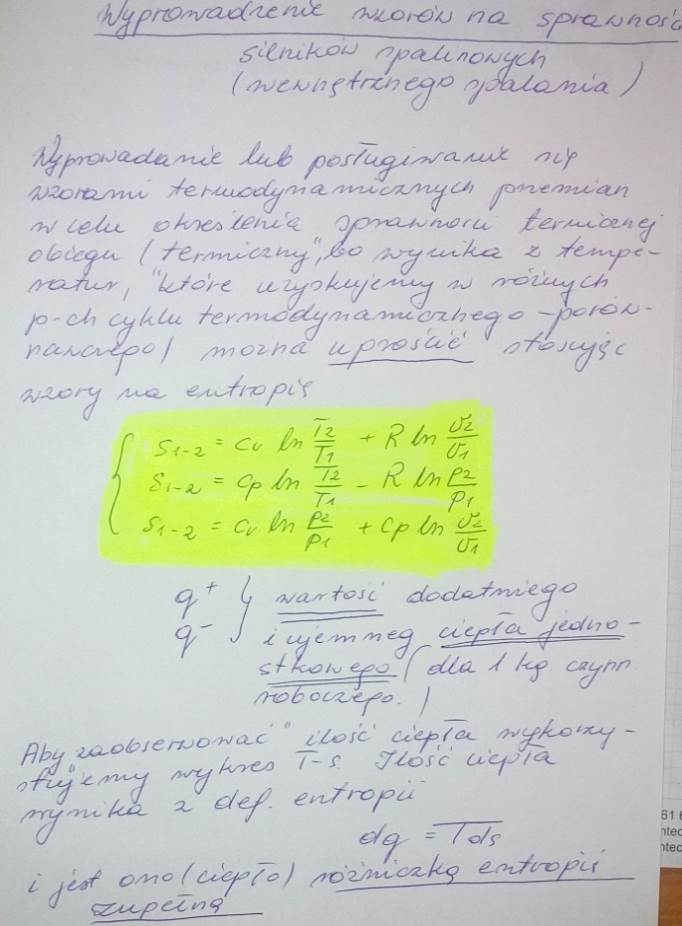 Wyprowadzenie wzorów na sprawność
silników spalinowych
(wewnętrznego spalania)
Wyprowadanie lub posługiwanie się
wzorami termodynamicznych przemian
w celu określenia sprawności termicznej
obiegu (termiczny", bo wynika z tempe-
ratur, "które uzyskujemy w różnych
p-ch cyklu termodynamicznego - porów-
nawczego) można uprościć stosując
wzory na entropię
S1-2 = cv ln T2/T1 + R ln v2/v1
S1-2 = cp ln T2/T1 - R ln p2/p1
S1-2 = cv ln p2/p1 + cp ln v2/v1
q+ } wartość dodatniego
q- i ujemneg ciepła jedno-
stkowego (dla 1 kg czynn
roboczego.)
Aby „zaobserwować" ilość ciepła wykorzy-
stujemy wykres T-s Ilość ciepła
wynika z def. entropii
dq = Tds
i jest ono (ciepło) różniczką entropii
zupełną
61
ntec
ntec